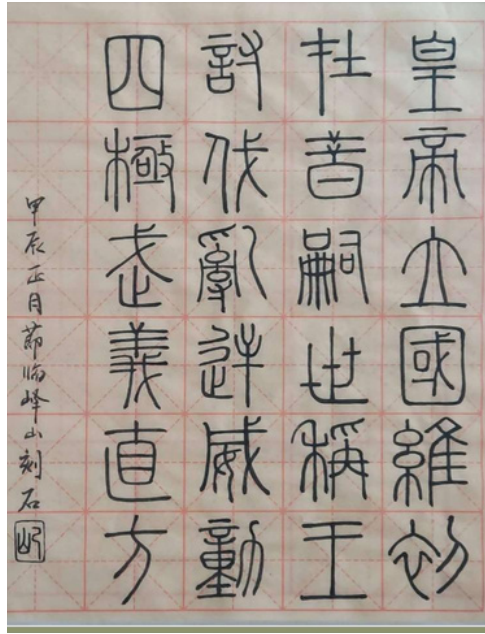 皇帝立國維初
在昔嗣世稱王
討伐亂逆威動
四極武義直方
甲辰正月節臨峄山刻石